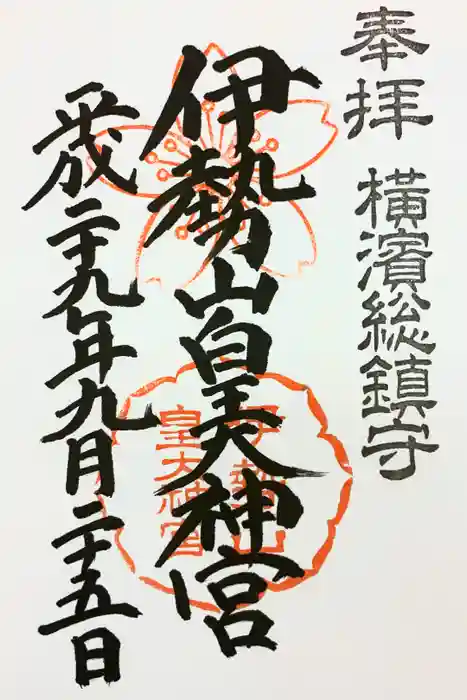 奉拝
横濱総鎮守
伊勢山皇大神宮
平成二十九年九月二十五日
伊勢山
皇大神宮